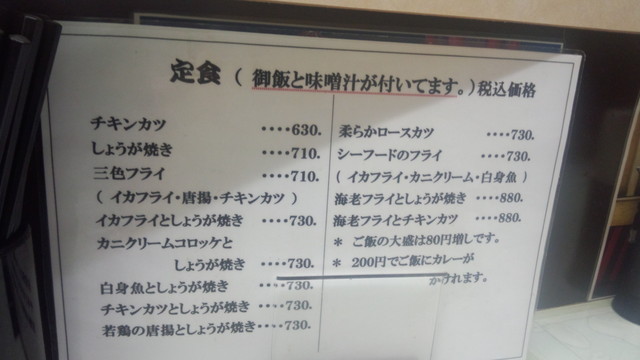 定食 ( 御飯と味噌汁が付いてます。)税込価格
チキンカツ ････630.
しょうが焼き ････710.
三色フライ ････710.
( イカフライ・唐揚・チキンカツ )
イカフライとしょうが焼き ････730.
カニクリームコロッケと
しょうが焼き ････730.
白身魚としょうが焼き ････730.
チキンカツとしょうが焼き････730.
若鶏の唐揚としょうが焼き････730.
柔らかロースカツ ････730.
シーフードのフライ ････730.
( イカフライ・カニクリーム・白身魚 )
海老フライとしょうが焼き ････880.
海老フライとチキンカツ ････880.
* ご飯の大盛は80円増しです。
* 200円でご飯にカレーが
かけれます。